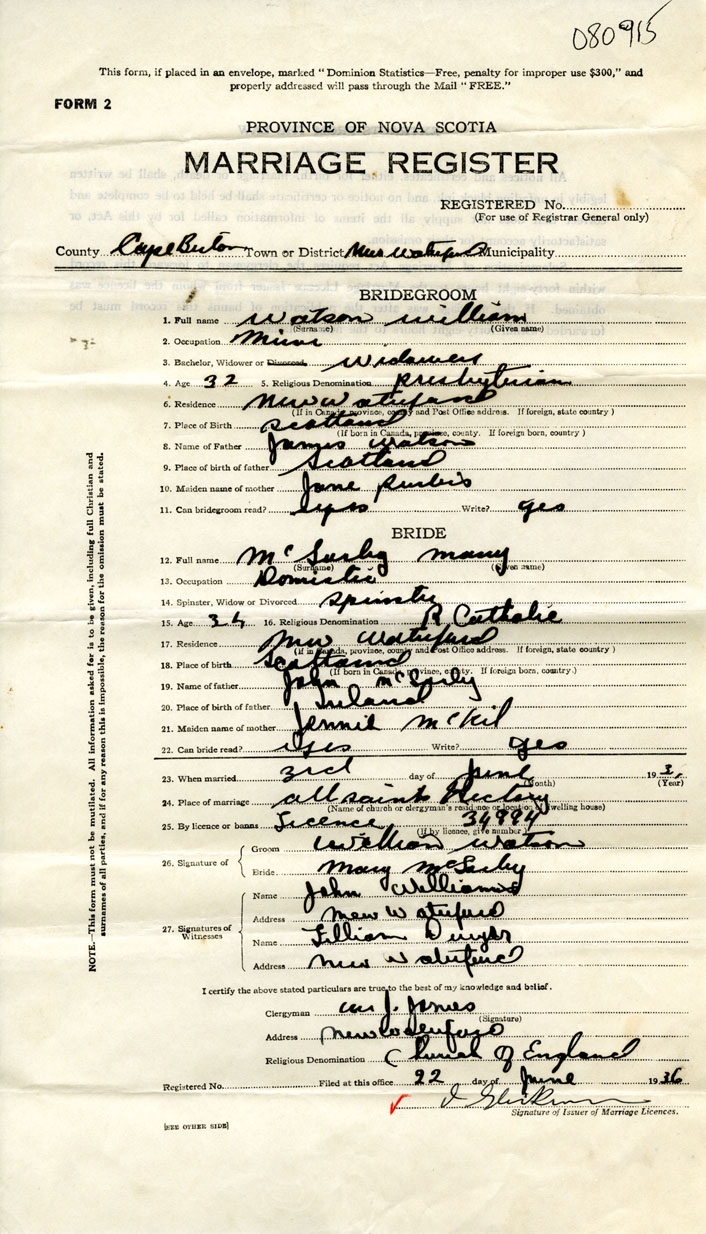 080915
This form, if placed in an envelope, marked "Dominion Statistics—Free, penalty for improper use $300," and
properly addressed will pass through the Mail "FREE."
FORM 2
PROVINCE OF NOVA SCOTIA
MARRIAGE REGISTER
REGISTERED No.
(For use of Registrar General only)
County Cape Breton Town or District New Waterford Municipality
BRIDEGROOM
1. Full name Watson William
(Surname) (Given name)
2. Occupation Miner
3. Bachelor, Widower or Divorced Widower
4. Age 32 5. Religious Denomination Presbyterian
6. Residence New Waterford
(If in Canada, province, county and Post Office address. If foreign, state country)
7. Place of Birth Scotland
(If born in Canada, province, county. If foreign born, country)
8. Name of Father James Watson
9. Place of birth of father Scotland
10. Maiden name of mother Jane
11. Can bridegroom read? yes Write? yes
BRIDE
12. Full name
(Surname) (Given name)
13. Occupation Domistic
14. Spinster, Widow or Divorced Spinster
15. Age 34 16. Religious Denomination R Catholic
17. Residence New Waterford
(If in Canada, province, county and Post Office address. If foreign, state country)
18. Place of birth Scotland
(If born in Canada, province, county. If foreign born, country.)
19. Name of father John
20. Place of birth of father Ireland
21. Maiden name of mother Jennie McKil
22. Can bride read? yes Write? yes
23. When married 3rd day of June 193
(Month) (Year)
24. Place of marriage all saints Rectory
(Name of church or clergyman's residence or location of dwelling house)
25. By licence or banns Licence 34994
(If by licence, give number)
26. Signature of
Groom William Watson
Bride. Mary
27. Signatures of Witnesses
Name John Williams
Address New Waterford
Name Lillian
Address New Waterford
I certify the above stated particulars are true to the best of my knowledge and belief.
Clergyman J. James
(Signature)
Address New Waterford
Religious Denomination Church of England
Registered No. Filed at this office 22 day of June 1936
Signature of Issuer of Marriage Licences.
[SEE OTHER SIDE]
NOTE.—This form must not be mutilated. All information asked for is to be given, including full Christian and
surnames of all parties, and if for any reason this is impossible, the reason for the omission must be stated.